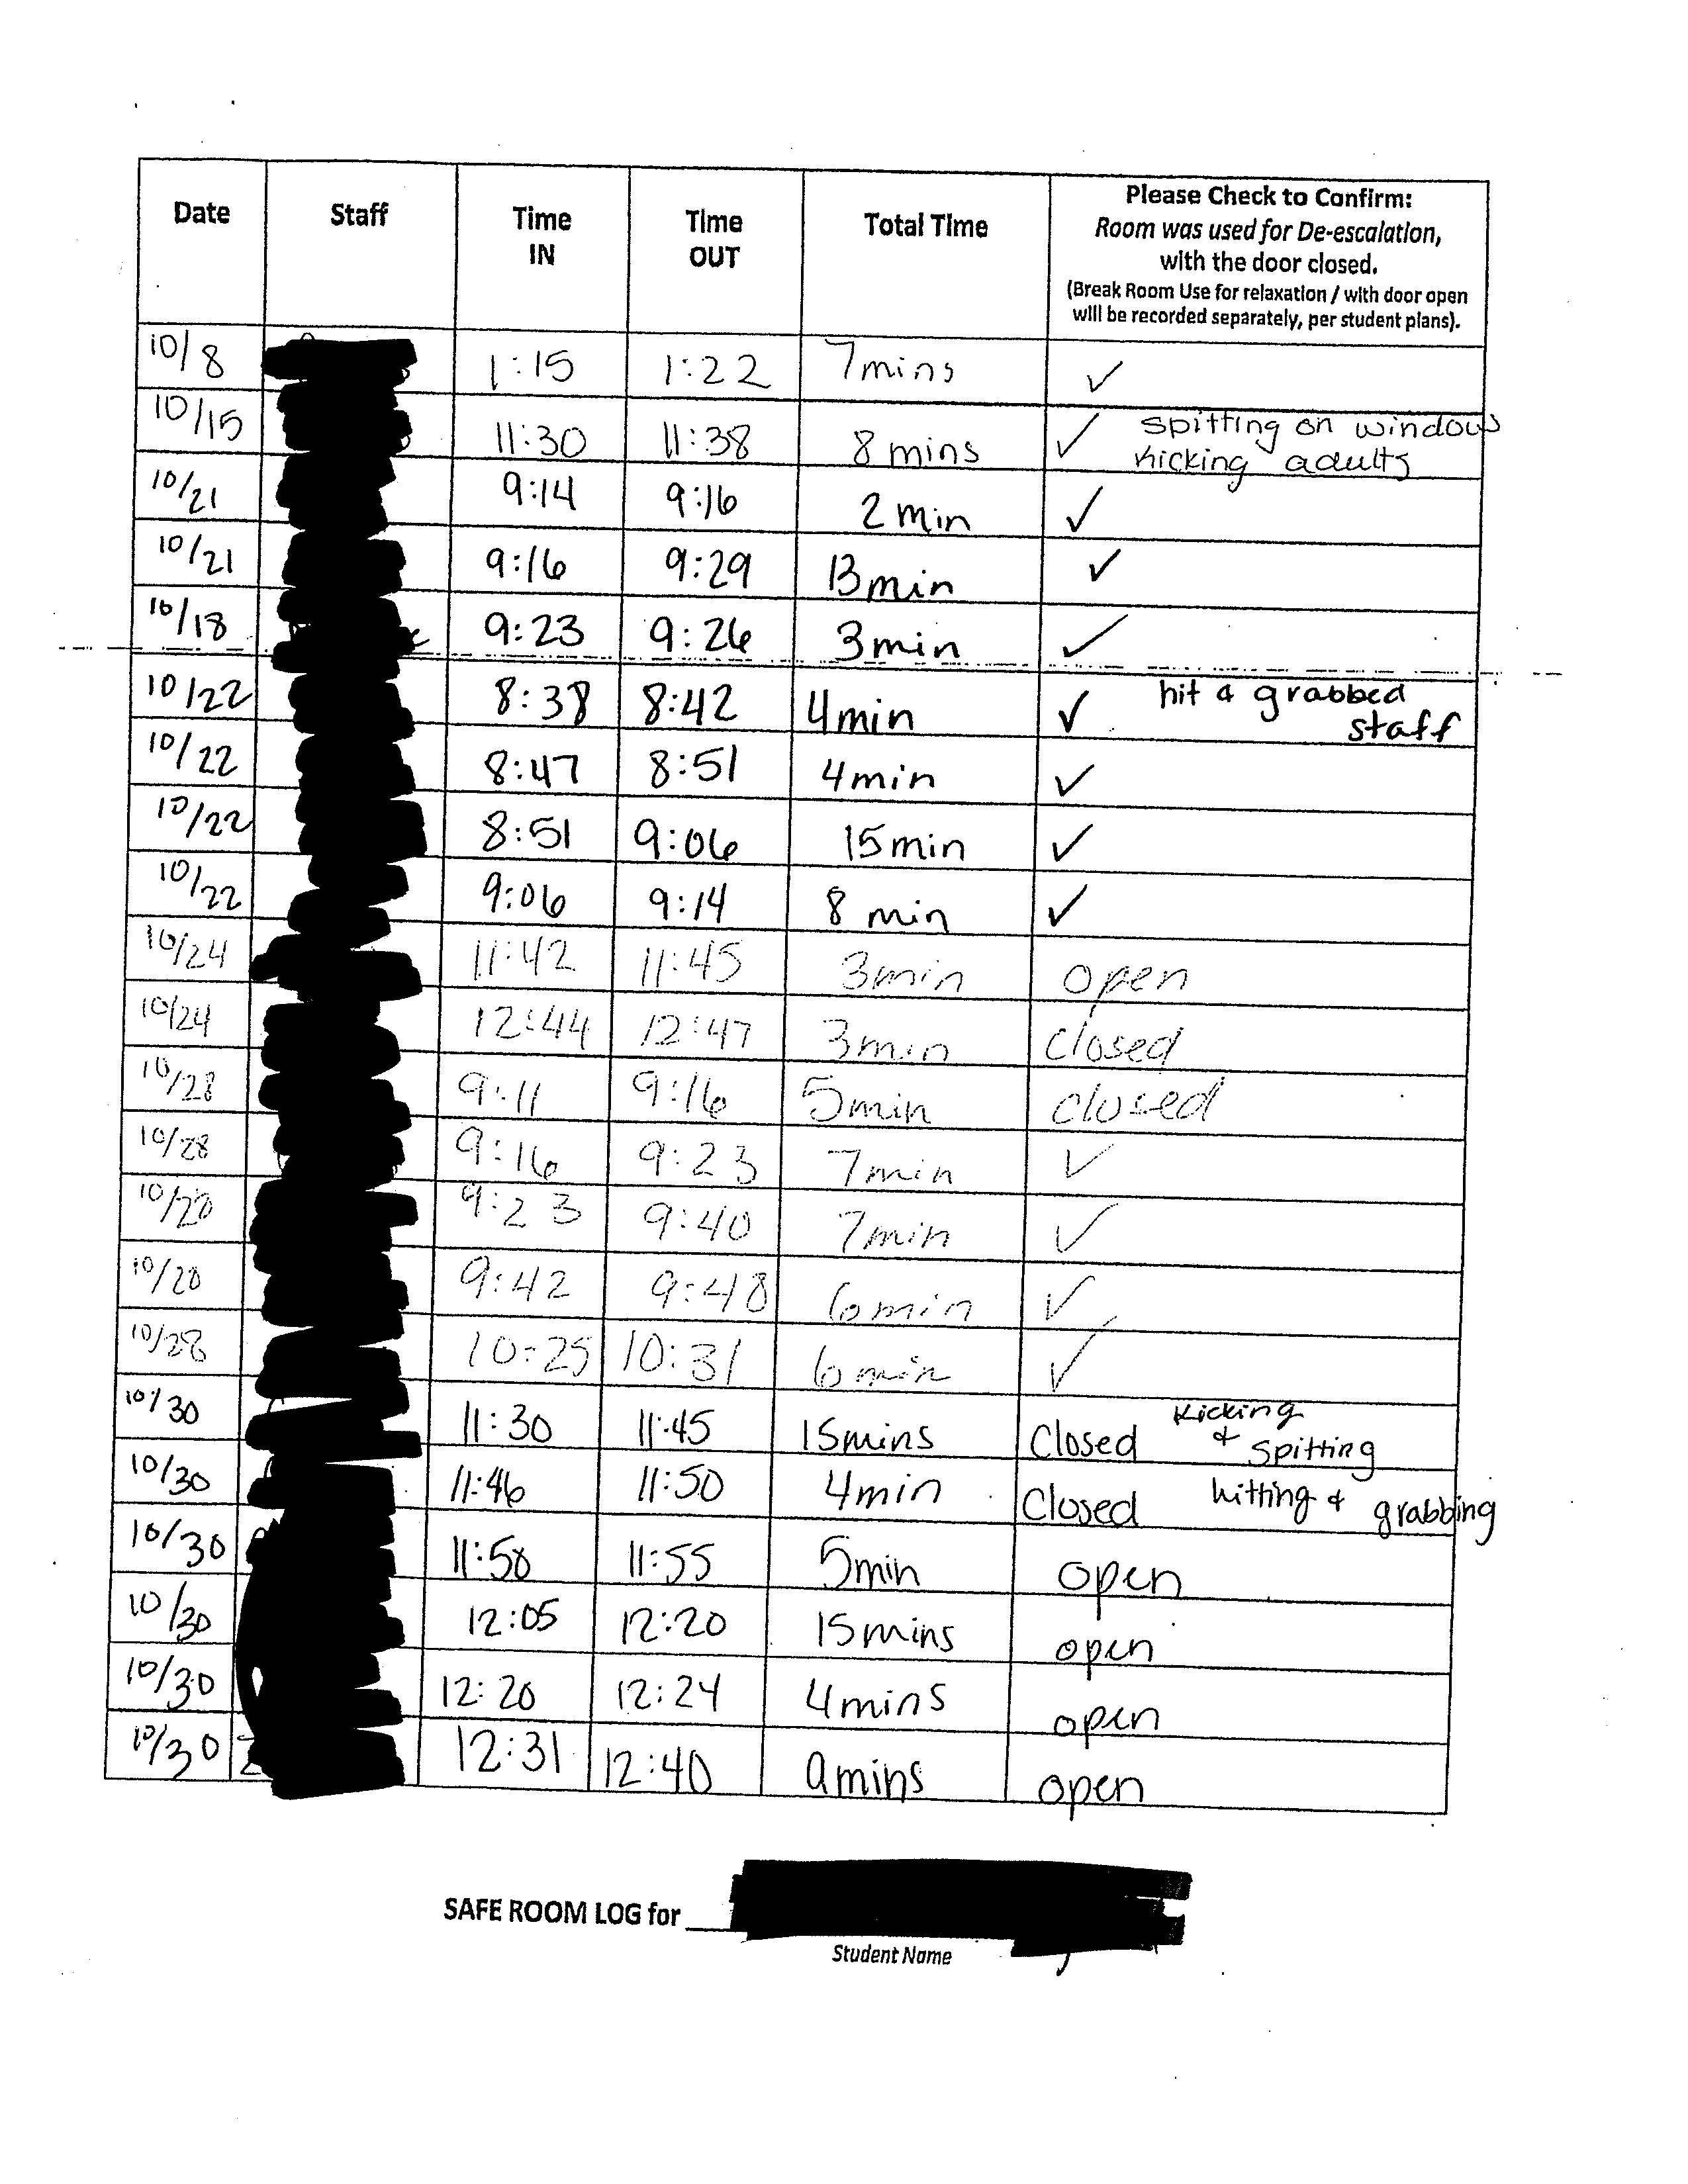 Date Staff Time IN Time OUT Total Time Please Check to Confirm:
Room was used for De-escalation,
with the door closed.
(Break Room Use for relaxation / with door open
will be recorded separately, per student plans).
10/8 1:15 1:22 7mins ✓
10/15 11:30 11:38 8 mins ✓ spitting on windows
kicking adults
10/21 9:14 9:16 2 min ✓
10/21 9:16 9:29 13min ✓
10/18 9:23 9:26 3min ✓
10/22 8:38 8:42 4min ✓ hit & grabbed
staff
10/22 8:47 8:51 4min ✓
10/22 8:51 9:06 15min ✓
10/22 9:06 9:14 8 min ✓
10/24 11:42 11:45 3min open
10/24 12:44 12:47 3min closed
10/28 9:11 9:16 5min closed
10/28 9:16 9:23 7min ✓
10/28 9:23 9:40 7min ✓
10/28 9:42 9:48 6min ✓
10/28 10:25 10:31 6min ✓
10/30 11:30 11:45 15mins Closed Kicking
& Spitting
10/30 11:46 11:50 4min Closed hitting & grabbing
10/30 11:50 11:55 5min open
10/30 12:05 12:20 15mins open
10/30 12:20 12:24 4mins open
10/30 12:31 12:40 9mins open
SAFE ROOM LOG for
Student Name